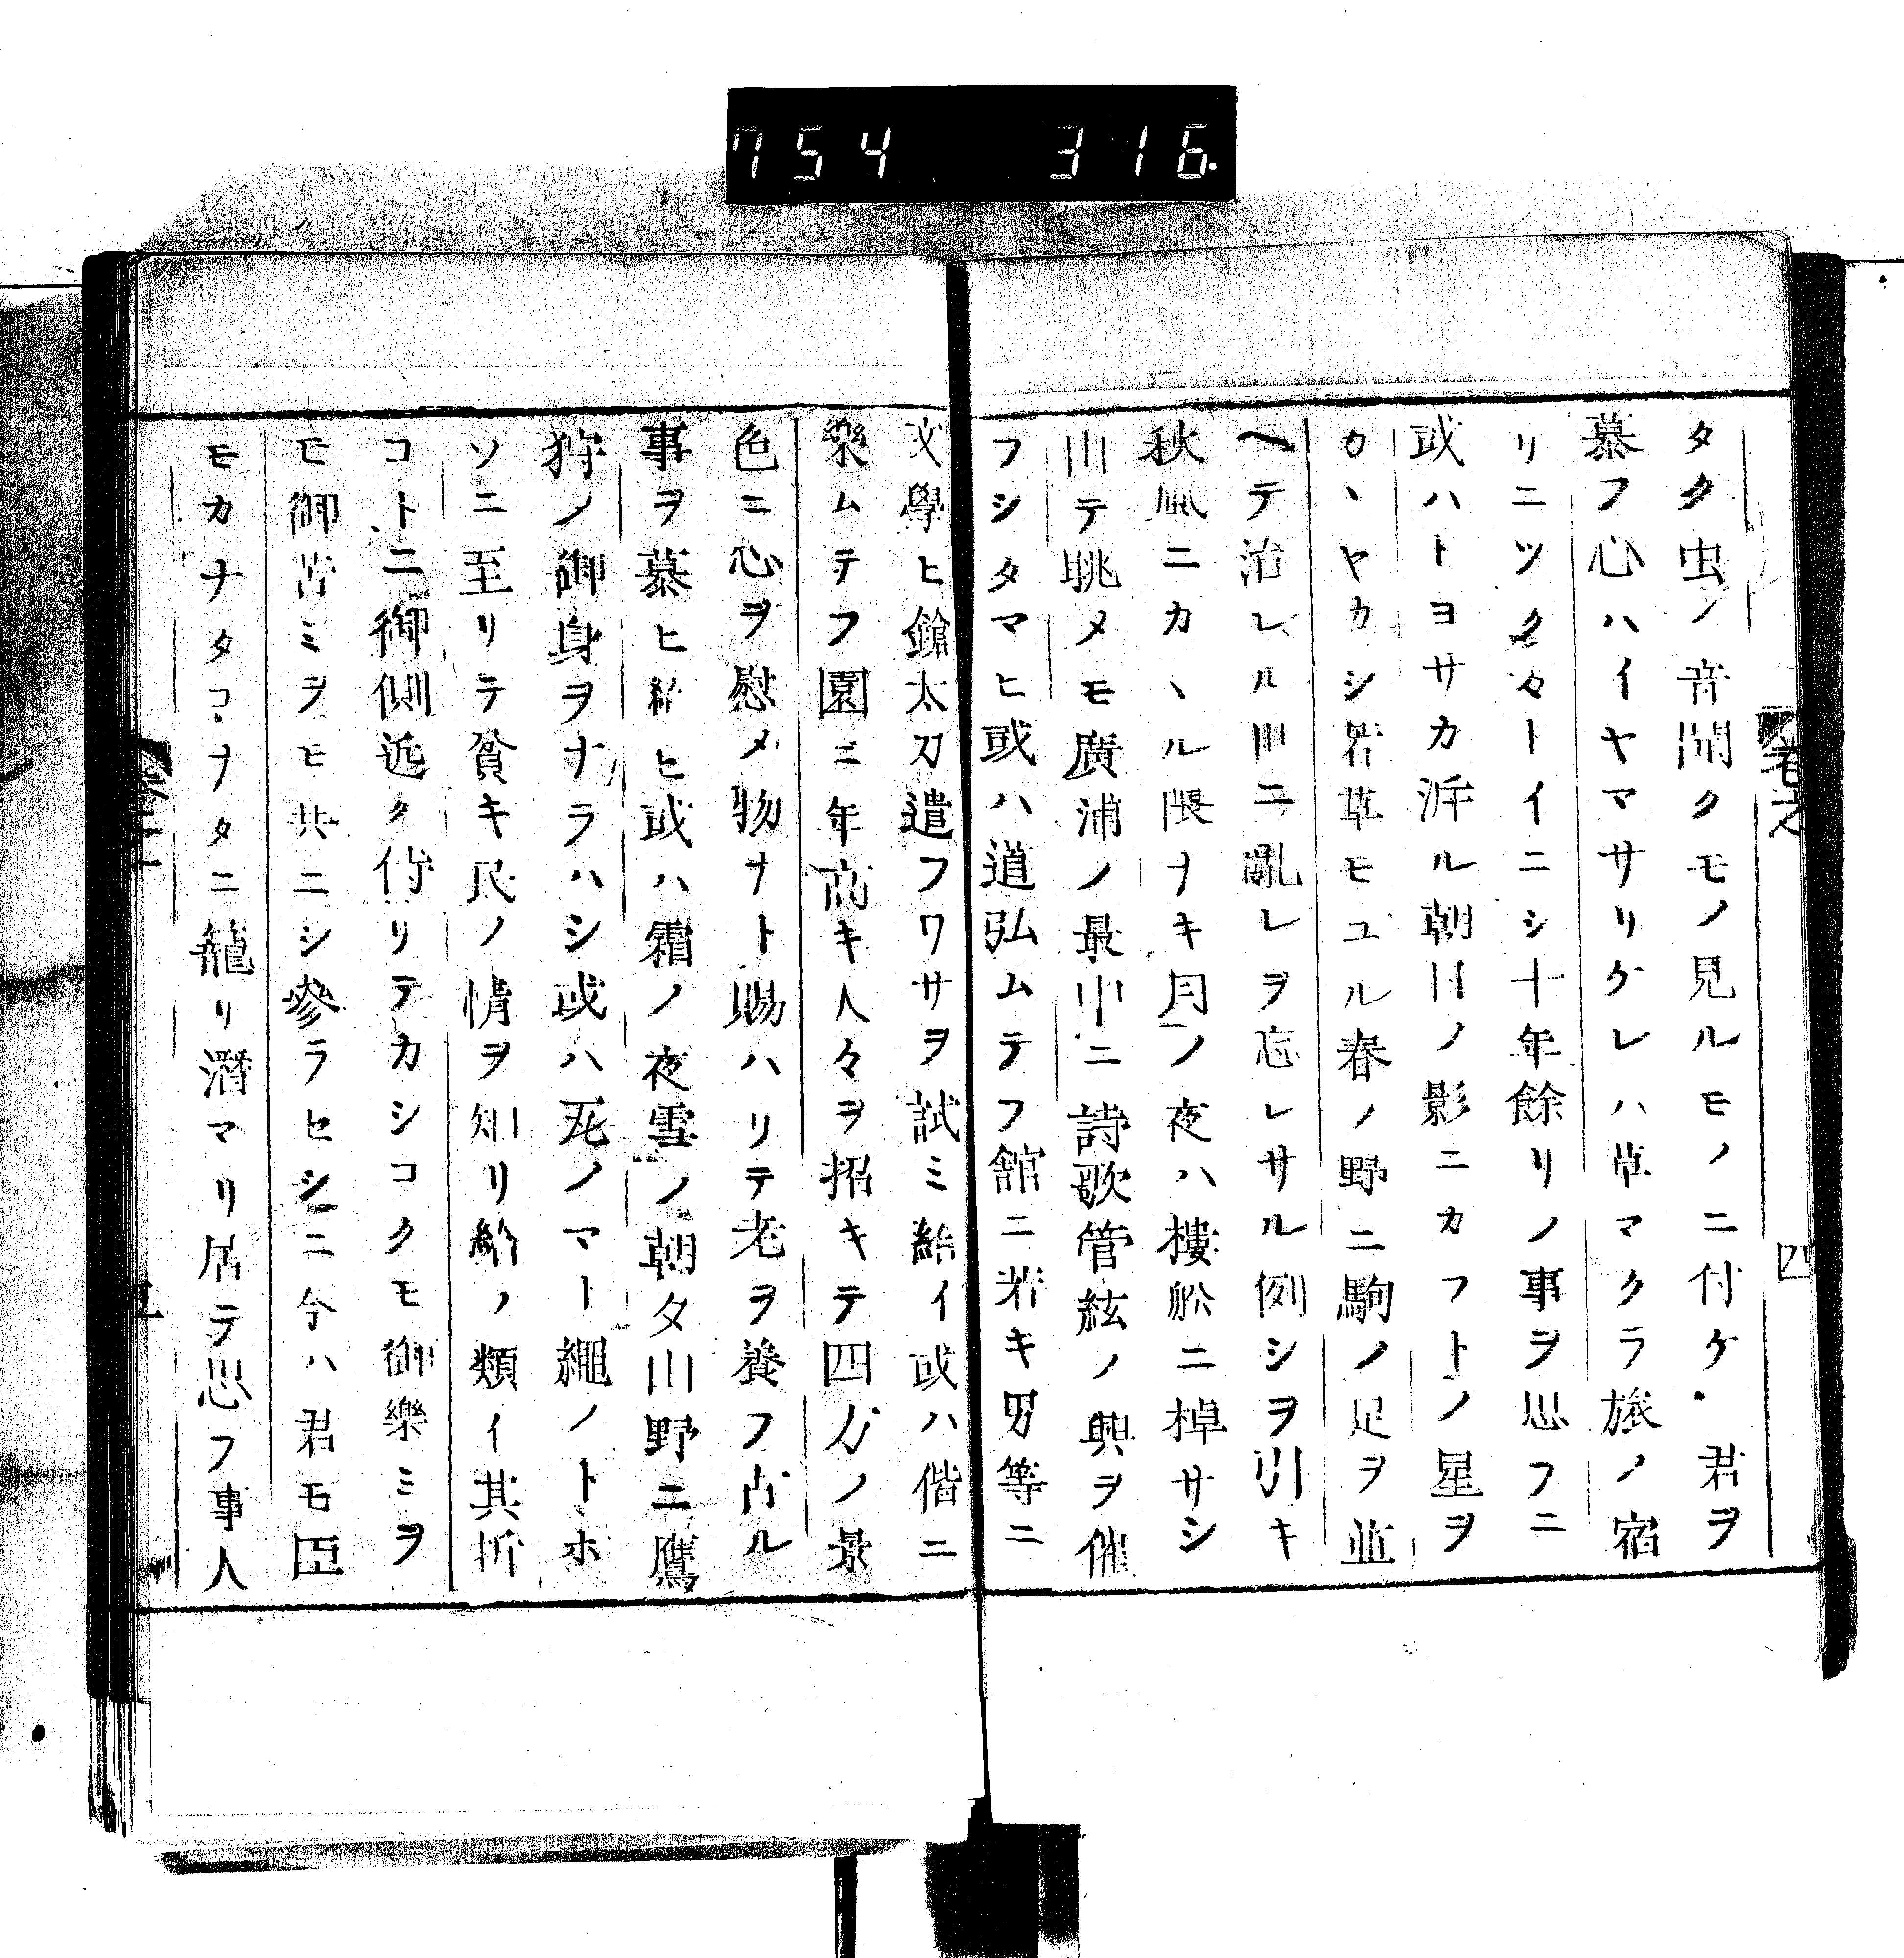 754 316
四
タク虫ノ音聞クモノ見ルモノニ付ケ君ヲ
慕フ心ハイヤマサリケレハ草マクラ旅ノ宿
リニツク々々トイニシ十年餘リノ事ヲ思フニ
或ハトヨサカ浜ル朝日ノ影ニカフトノ星ヲ
カヽヤカシ若草モユル春ノ野ニ駒ノ足ヲ並
ヘテ治レル世ニ亂レヲ忘レサル例シヲ引キ
秋風ニカヽル隈ナキ月ノ夜ハ樓舩ニ棹サシ
川テ眺メモ廣浦ノ最中ニ詩歌管絃ノ興ヲ催
フシタマヒ或ハ道弘ムテフ館ニ若キ男等ニ
文學ヒ鎗太刀遣フワサヲ試ミ給イ或ハ偕ニ
樂ムテフ園ニ年高キ人々ヲ招キテ四方ノ景
色ニ心ヲ慰メ物ナト賜ハリテ老ヲ養フ古ル
事ヲ慕ヒ給ヒ或ハ霜ノ夜雪ノ朝タ山野ニ鷹
狩ノ御身ヲナラハシ或ハ死ノマト繩ノトホ
ソニ至リテ貧キ民ノ情ヲ知リ給ノ類イ其折
コトニ御側近ク侍リテカシコクモ御樂ミヲ
モ御苦ミヲモ共ニシ參ラセシニ今ハ君モ臣
モカナタコナタニ籠リ潛マリ居テ思フ事人